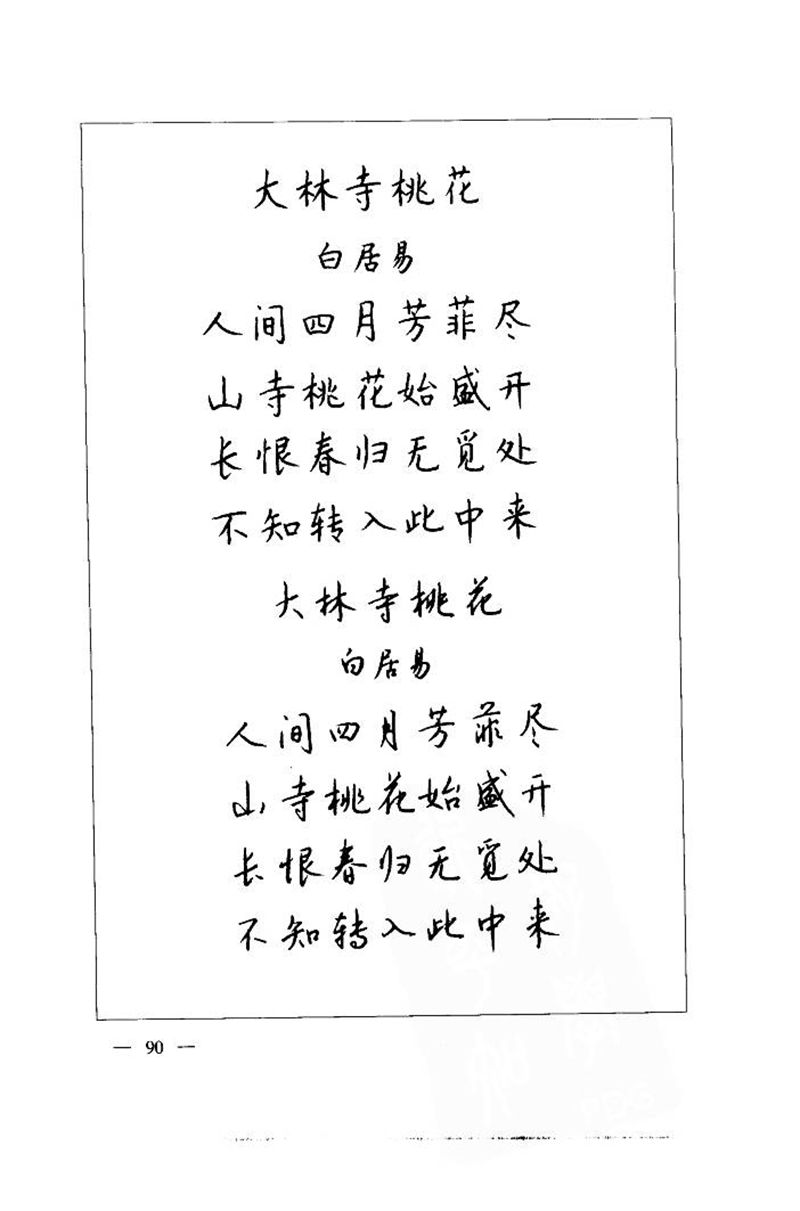 大林寺桃花
白居易
人间四月芳菲尽
山寺桃花始盛开
长恨春归无觅处
不知转入此中来
大林寺桃花
白居易
人间四月芳菲尽
山寺桃花始盛开
长恨春归无觅处
不知转入此中来
— 90 —